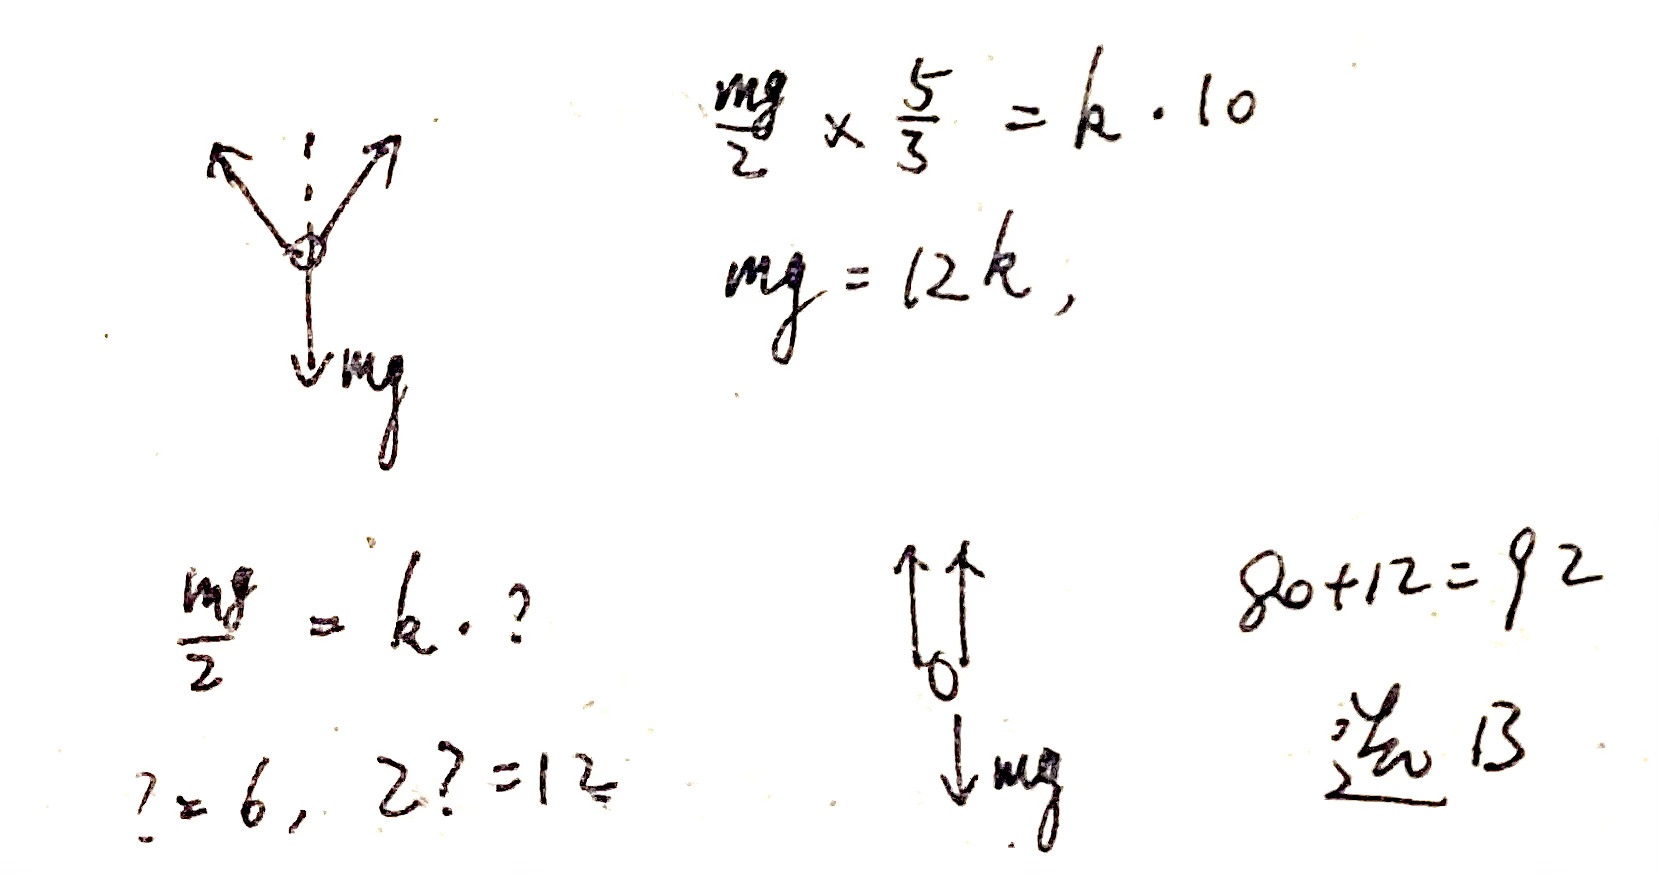 mg/2 × 5/3 = k · 10
mg = 12k,
mg
mg/2 = k · ?
? = 6, 2? = 12
mg
80+12=92
选B